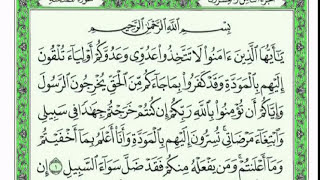 بِسْمِ ٱللَّهِ ٱلرَّحْمَٰنِ ٱلرَّحِيمِ
يَٰٓأَيُّهَا ٱلَّذِينَ ءَامَنُوا۟ لَا تَتَّخِذُوا۟ عَدُوِّى وَعَدُوَّكُمْ أَوْلِيَآءَ تُلْقُونَ
إِلَيْهِم بِٱلْمَوَدَّةِ وَقَدْ كَفَرُوا۟ بِمَا جَآءَكُم مِّنَ ٱلْحَقِّ يُخْرِجُونَ ٱلرَّسُولَ
وَإِيَّاكُمْ أَن تُؤْمِنُوا۟ بِٱللَّهِ رَبِّكُمْ إِن كُنتُمْ خَرَجْتُمْ جِهَٰدًا فِى سَبِيلِى
وَٱبْتِغَآءَ مَرْضَاتِى تُسِرُّونَ إِلَيْهِم بِٱلْمَوَدَّةِ وَأَنَا۠ أَعْلَمُ بِمَآ أَخْفَيْتُمْ
وَمَآ أَعْلَنتُمْ وَمَن يَفْعَلْهُ مِنكُمْ فَقَدْ ضَلَّ سَوَآءَ ٱلسَّبِيلِ ۝١ إِن